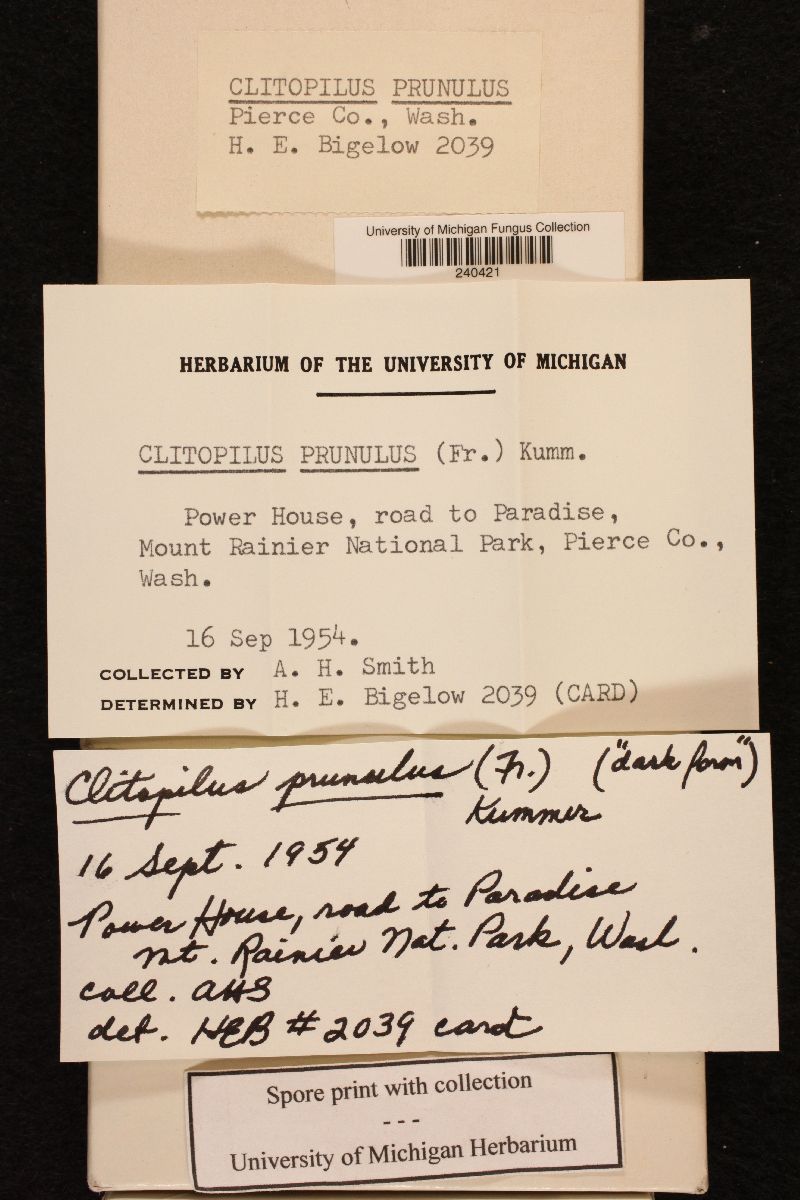 CLITOPILUS PRUNULUS
Pierce Co., Wash.
H. E. Bigelow 2039
University of Michigan Fungus Collection
240421
HERBARIUM OF THE UNIVERSITY OF MICHIGAN
CLITOPILUS PRUNULUS (Fr.) Kumm.
Power House, road to Paradise,
Mount Rainier National Park, Pierce Co.,
Wash.
16 Sep 1954.
COLLECTED BY A. H. Smith
DETERMINED BY H. E. Bigelow 2039 (CARD)
Clitopilus prunulus (Fr.) ("dark form")
Kummer
16 Sept. 1954
Power House, road to Paradise
Mt. Rainier Nat. Park, Wash.
coll. AHS
det. HEB # 2039 card
Spore print with collection
- - -
University of Michigan Herbarium